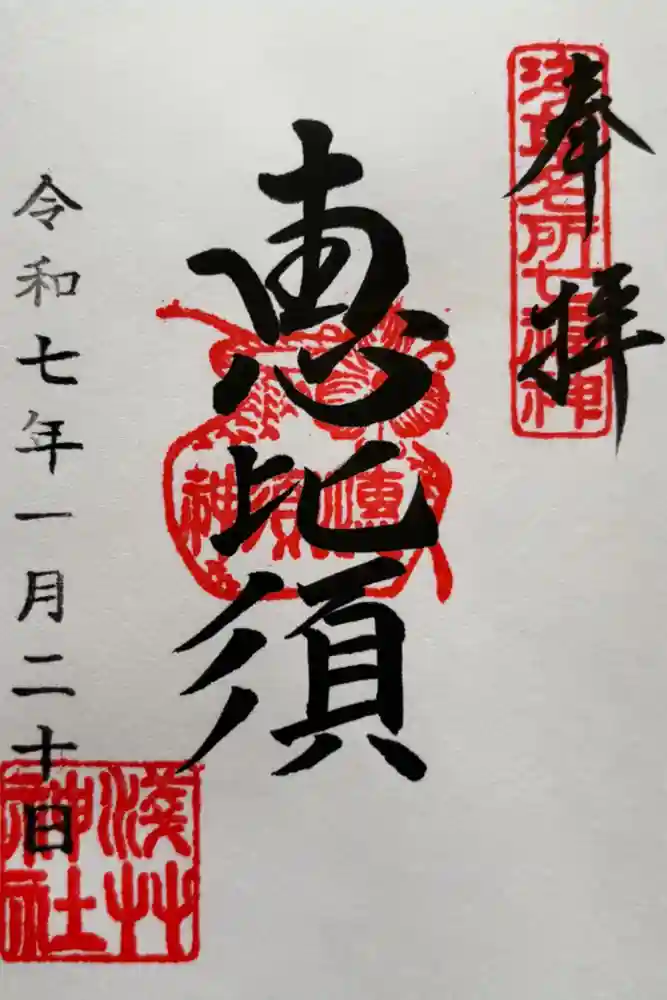 奉拝
浅草名所七福神
恵比須
恵比須神
令和七年一月二十日
淺草神社